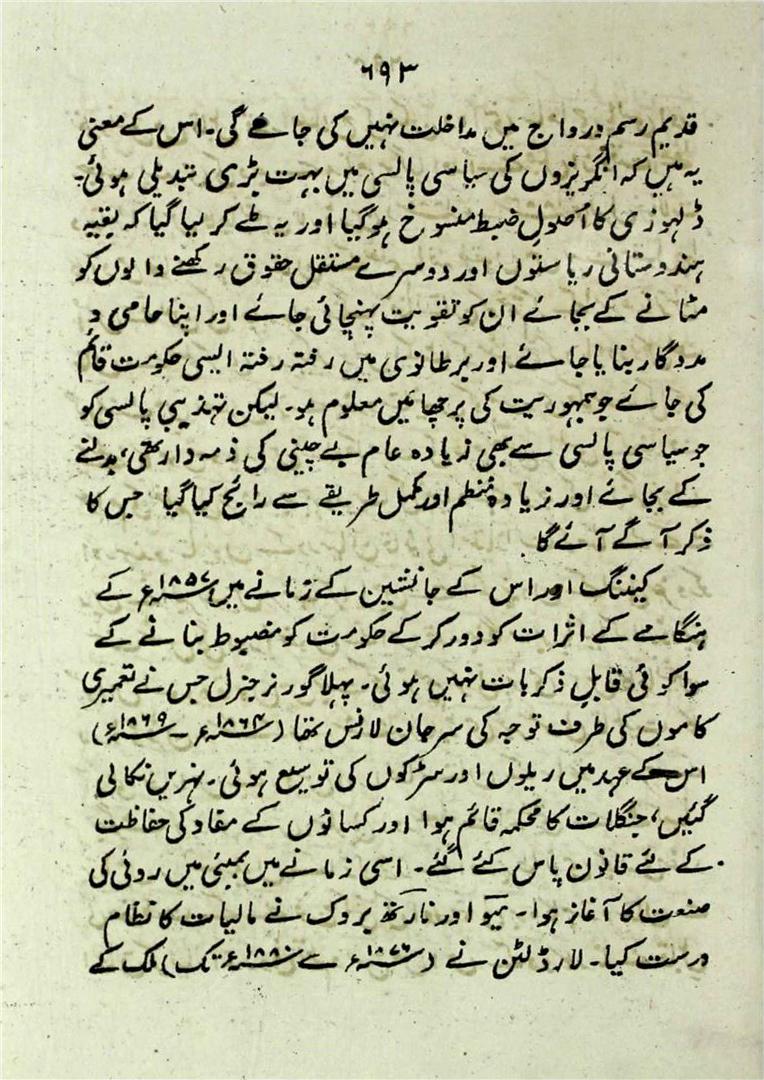 ۶۹۳
قدیم رسم و رواج میں مداخلت نہیں کی جائے گی۔ اس کے معنی
یہ ہیں کہ انگریزوں کی سیاسی پالسی میں بہت بڑی تبدیلی ہوئی۔
ڈلہوزی کا اُصولِ ضبط منسوخ ہوگیا اور یہ طے کر لیا گیا کہ بقیہ
ہندوستانی ریاستوں اور دوسرے مستقل حقوق رکھنے والوں کو
مٹانے کے بجائے ان کو تقویت پہنچائی جائے اور اپنا حامی و
مددگار بنایا جائے اور برطانوی میں رفتہ رفتہ ایسی حکومت قائم
کی جائے جو جمہوریت کی پرچھائیں معلوم ہو۔ لیکن تہذیبی پالسی کو
جو سیاسی پالسی سے بھی زیادہ عام بے چینی کی ذمہ دار تھی، بدلنے
کے بجائے اور زیادہ منظم اور مکمل طریقے سے رائج کیا گیا جس کا
ذکر آگے آئے گا۔
کیننگ اور اس کے جانشین کے زمانے میں ۱۸۵۷ء کے
ہنگامے کے اثرات کو دور کر کے حکومت کو مضبوط بنانے کے
سوا کوئی قابلِ ذکر بات نہیں ہوئی۔ پہلا گورنر جنرل جس نے تعمیری
کاموں کی طرف توجہ کی سرجان لارنس تھا (۱۸۶۴ء ۔ ۱۸۶۹ء)
اس کے عہد میں ریلوں اور سڑکوں کی توسیع ہوئی۔ نہریں نکالی
گئیں، جنگلات کا محکمہ قائم ہوا اور کسانوں کے مفاد کی حفاظت
کے لئے قانون پاس کئے گئے۔ اسی زمانے میں بمبئی میں روئی کی
صنعت کا آغاز ہوا۔ میو اور نارتھ بروک نے مالیات کا نظام
درست کیا۔ لارڈ لٹن نے (۱۸۷۶ء سے ۱۸۸۰ء تک) ملک کے